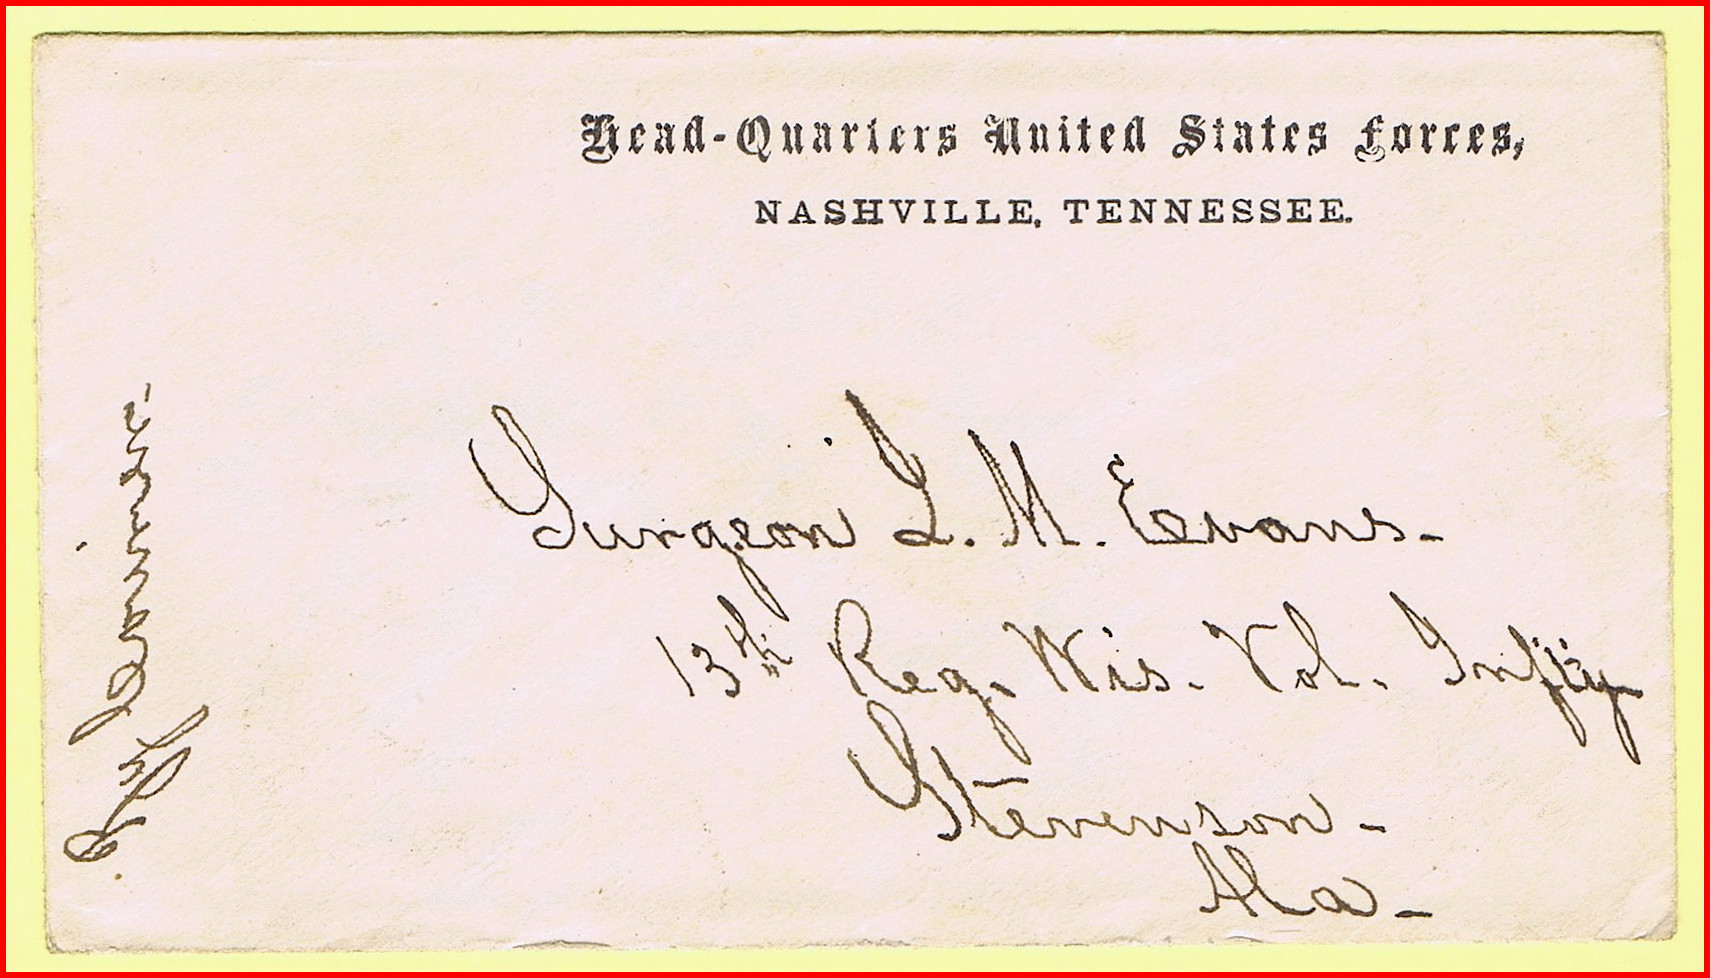 Head-Quarters United States Forces,
NASHVILLE, TENNESSEE.
Surgeon J. M. Evans-
13th Reg. Wis. Vol. Infty
Stevenson-
Ala-
Business